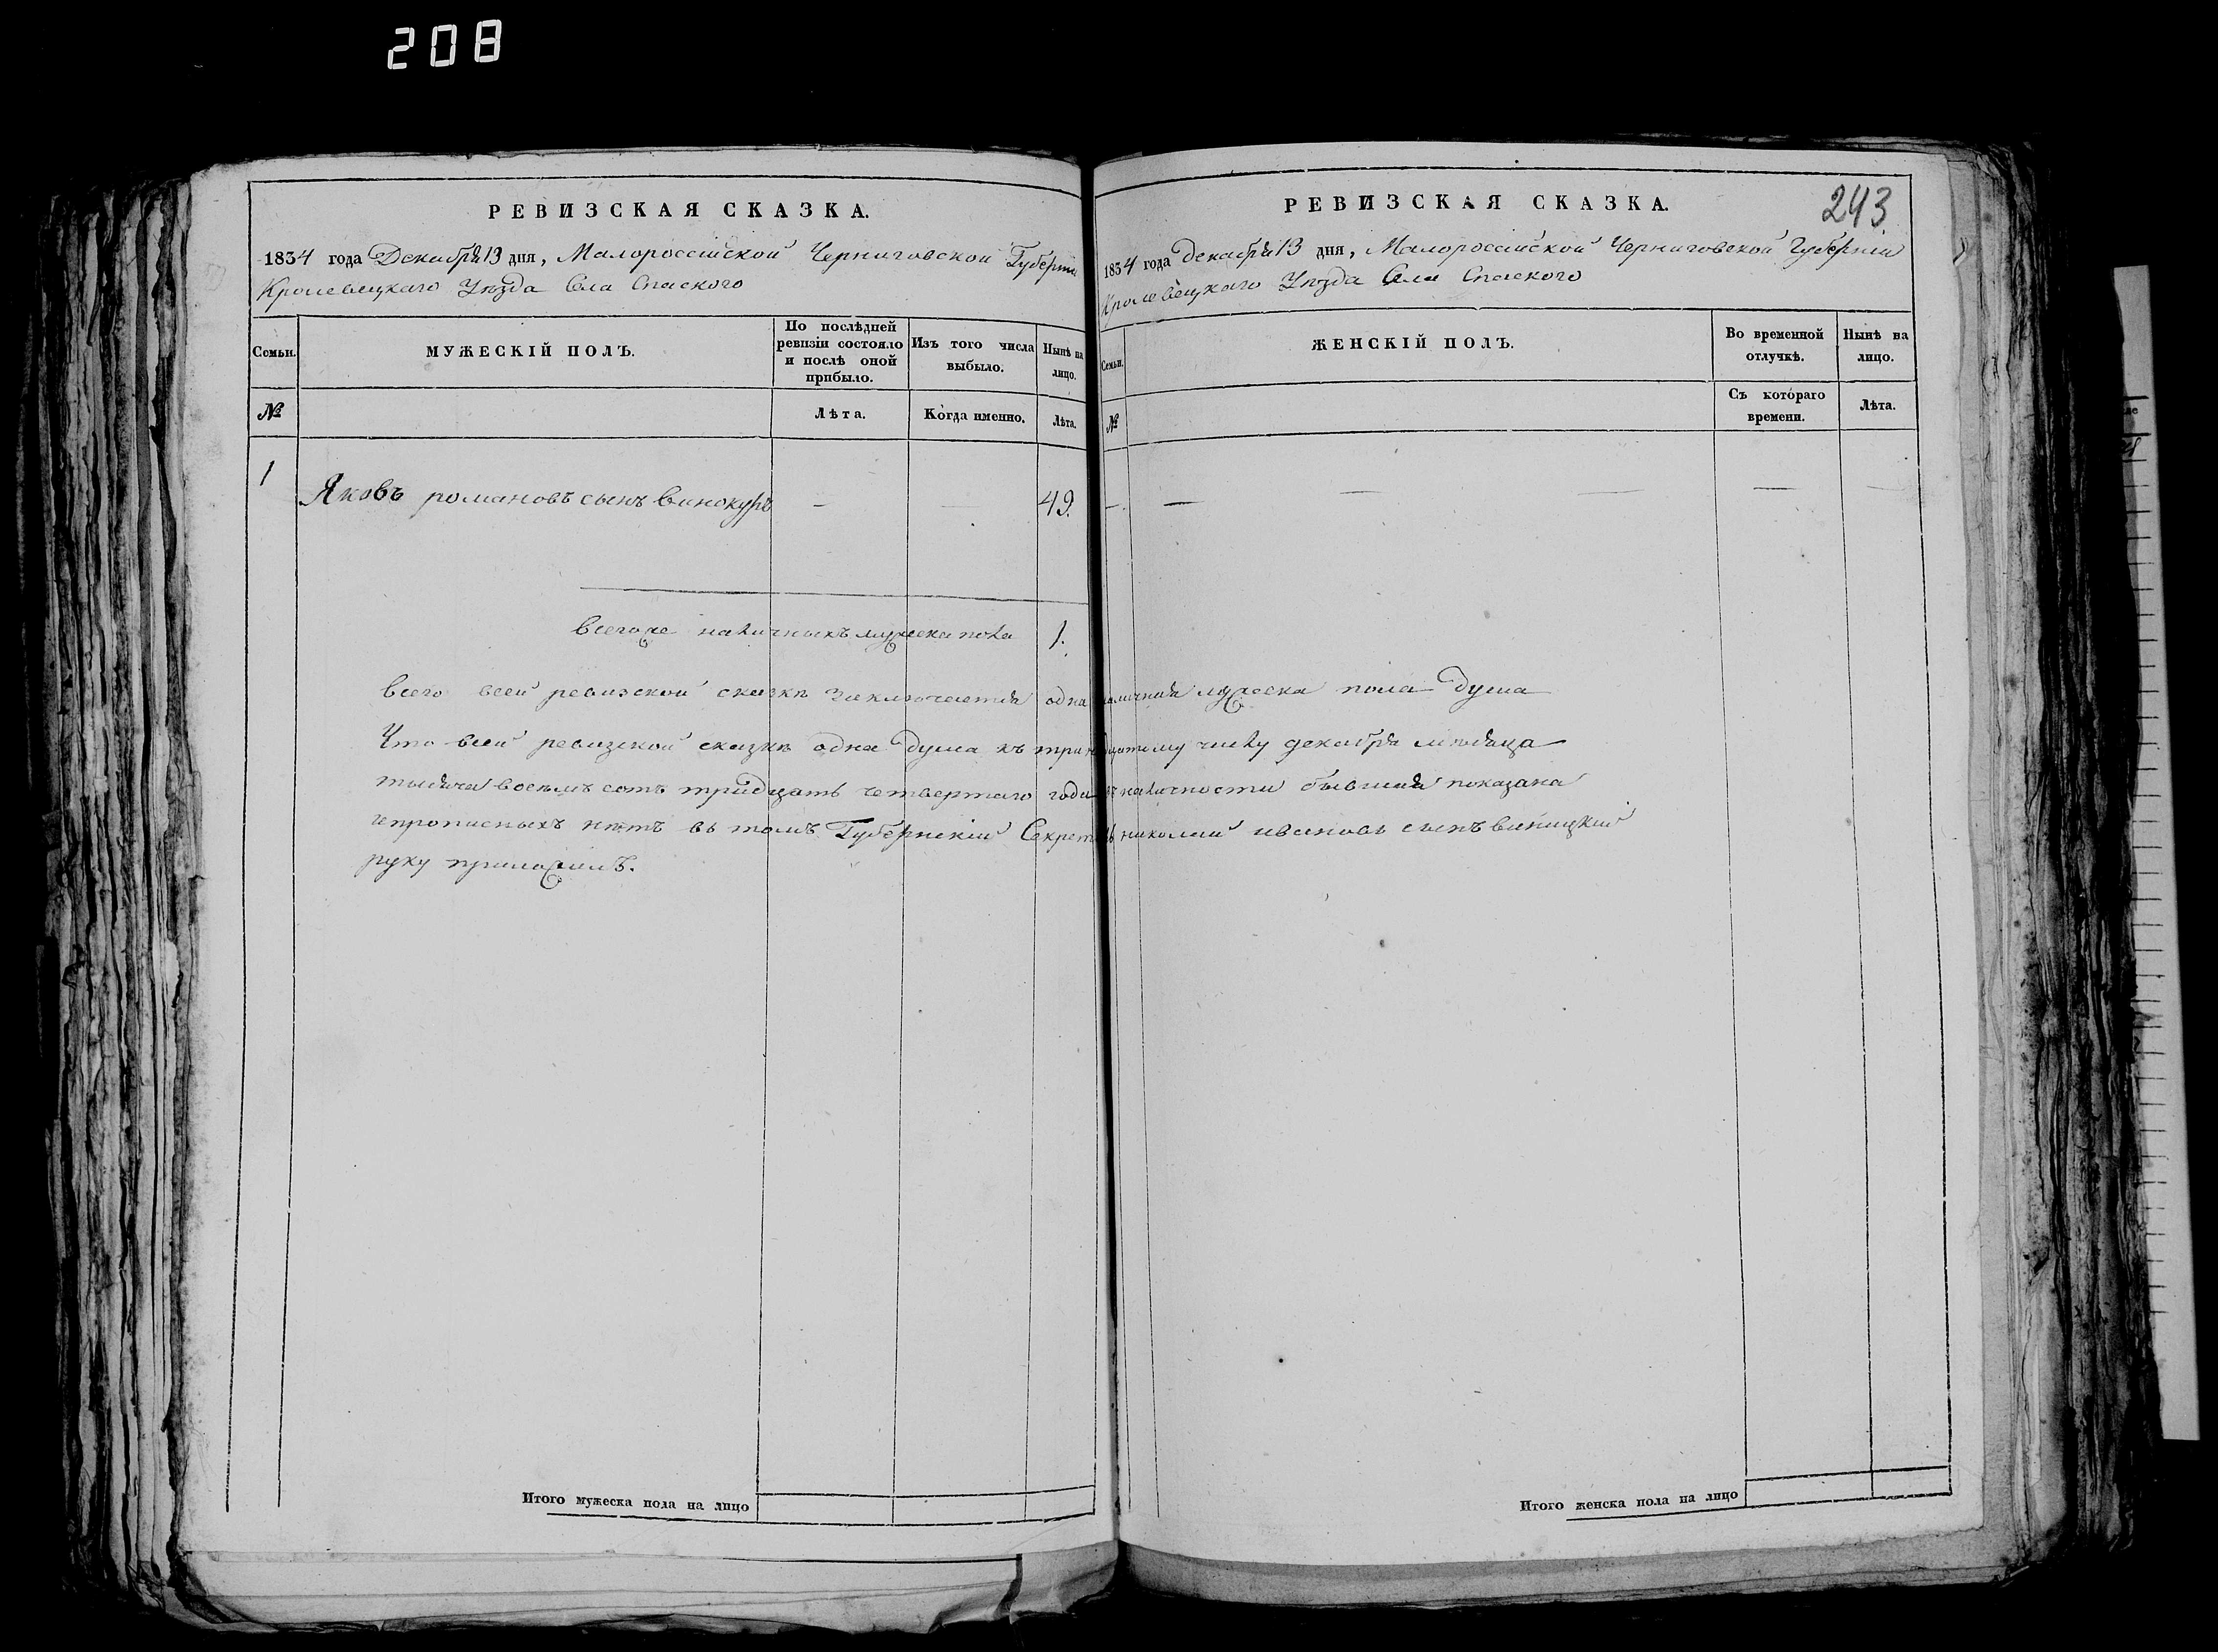 208
РЕВИЗСКАЯ СКАЗКА.
1834 года Декабря 13 дня, Малороссийской Черниговской Губернии
Кролевецкаго Уѣзда Села Спаского
Семьи.
МУЖЕСКІЙ ПОЛЪ.
По послѣдней
ревизіи состояло
и послѣ оной
прибыло.
Изъ того числа
выбыло.
Нынѣ на
лицо.
№
Лѣта.
Когда именно.
Лѣта.
1
Яковъ романовъ сынъ винокуръ — — 49.
Всегоже наличныхъ мужеска пола 1.
РЕВИЗСКАЯ СКАЗКА.
243
1834 года декабря 13 дня, Малороссийской Черниговской Губерніи
Кролевецкаго Уѣзда Села Спаского
Семьи.
ЖЕНСКІЙ ПОЛЪ.
Во временной
отлучкѣ.
Нынѣ на
лицо.
№
Съ котораго
времени.
Лѣта.
— — — — — —
Всего всей ревизской сказкѣ заключается одна наличная мужеска пола душа
Что всей ревизской сказкѣ одна душа къ тринадцатому числу декабря мѣсяца
тысяча восемъ сотъ тридцать четвертаго года въ наличности бывшая показана
ипрописныхъ нѣтъ въ томъ Губернскій Секретарь николай ивановъ сынъ виницкий
руку приложилъ.
Итого мужеска пола на лицо
Итого женска пола на лицо